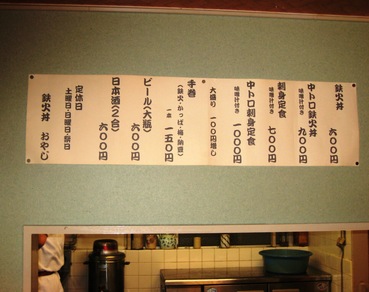 鉄火丼 六〇〇円
味噌汁付き
中トロ鉄火丼 九〇〇円
味噌汁付き
刺身定食 七〇〇円
味噌汁付き
中トロ刺身定食 一〇〇〇円
大盛り 一〇〇円増し
手巻
(鉄火・かっぱ・梅・納豆)
一本 一五〇円
ビール(大瓶) 六〇〇円
日本酒(2合) 六〇〇円
定休日
土曜日・日曜日・祭日
鉄火丼 おやじ